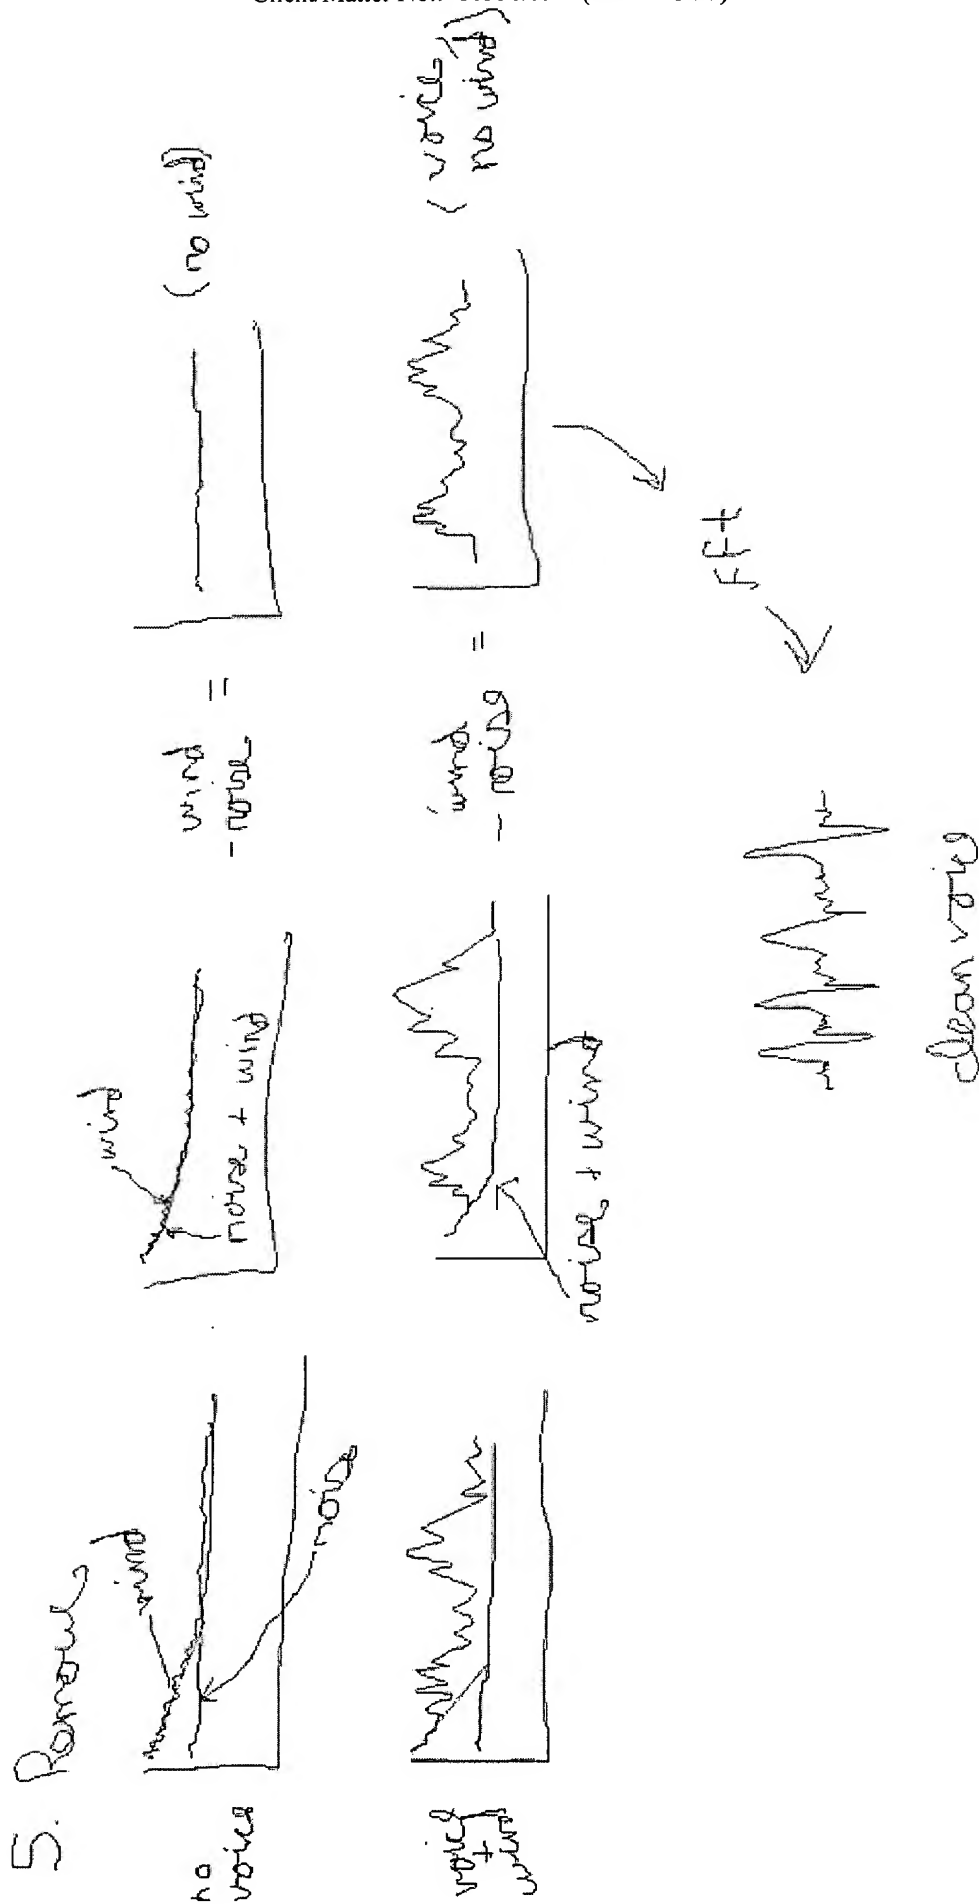 5. Remove
no
voice
wind
noise
wind
noise + wind
- wind
noise
=
(no wind)
voice
+
wind
noise + wind
- wind
noise
=
(voice,
no wind)
fft
clean voice